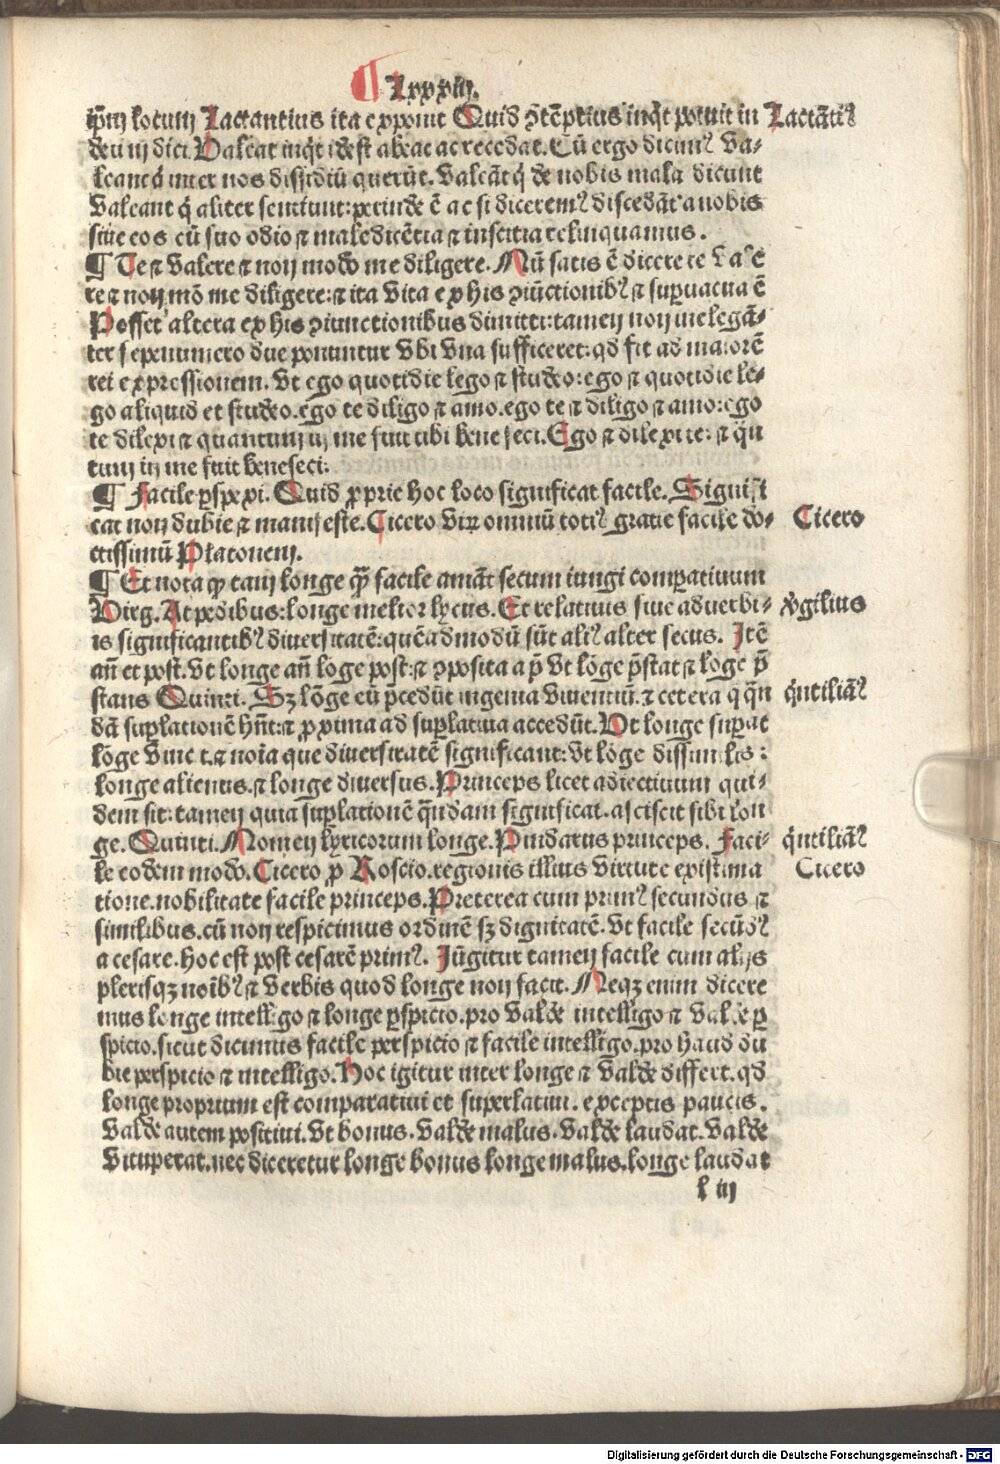 ¶ Lxxxiij.
ip̄m locum Lactantius ita exponit Quid ɔtēptius inq̇t potuit in Lactātiꝰ
deū ɱ dici Valeat inq̇t idest abeat ac recedat. Cū ergo dicimꝰ Va⸗
leant q́ inter nos dissidiū querūt. Valeāt q́ de nobis mala dicunt
Valeant q́ aliter sentiunt: perinde ē ac si diceremꝰ discedāt a nobis
siue eos cū suo odio ⁊ maledicētia ⁊ inscitia relinquamus.
¶ Te ⁊ Valere ⁊ non modo me diligere. Nū satis ē dicere te Vale
re ⁊ non mō me diligere: ⁊ ita Vita ex his ɔiūctionibꝰ ⁊ supuacua ē
Posset altera ex his ɔiunctionibus dimitti: tamen non inelegā⸗
ter sepenumero due ponuntur Vbi Vna sufficeret: qd fit ad maiorē
rei expressionem. Vt ego quotidie lego ⁊ studeo: ego ⁊ quotidie le⸗
go aliquid et studeo. ego te diligo ⁊ amo. ego te ⁊ diligo ⁊ amo: ego
te dilexi ⁊ quantum in me fuit tibi benefeci. Ego ⁊ dilexi te: ⁊ q̄n
tum in me fuit benefeci:
¶ Facile pspexi. Quid proprie hoc loco significat facile. Signifi
cat non dubie ⁊ manifeste. Cicero Viꝝ omniū totiꝰ gratie facile do⸗ Cicero
ctissimū Platonem.
¶ Et nota ꝙ tam longe q̄ȝ facile amāt secum iungi compatiuum
Virg. At pedibus: longe melior lycus. Et relatiuis siue aduerbi⸗ v̇gilius
is significantibꝰ diuersitatē: quēadmodū sūt aliꝰ alter secus. Itē
añ et post. Vt longe añ lōge post: ⁊ ɔposita a p̄ Vt lōge p̄stat ⁊ lōge p̄
stans Quinti. Sꝫ lōge eū p̄cedūt ingenia Viuentiū. ⁊ cetera q q̄n q́ntiliāꝰ
dā suplationē hñt: ⁊ proxima ad suplatiua accedūt. Vt longe supat
lōge Vincit. ⁊ noīa que diuersitatē significant: Vt lōge dissimilis:
longe alienus. ⁊ longe diuersus. Princeps licet adiectiuum qui⸗
dem sit: tamen quia suplationē q̄ndam significat. asciscit sibi lon
ge. Quinti. Nomen lyricorum longe. Pindarus princeps. Faci⸗ q́ntiliāꝰ
le eodem modo. Cicero p̄ Roscio. regionis illius Virtute existima Cicero
tione. nobilitate facile princeps. Preterea cum primꝰ secundus ⁊
similibus. cū non respicimus ordinē sꝫ dignitatē. Vt facile secūdꝰ
a cesare. hoc est post cesarē primꝰ. Iūgitur tamen facile cum alijs
plerisqꝫ noībꝰ ⁊ Verbis quod longe non facit. Neqꝫ enim dicere
mus longe intelligo ⁊ longe pspicio. pro Valde intelligo ⁊ Valde p
spicio. sicut dicimus facile perspicio ⁊ facile intelligo. pro haud du
bie perspicio ⁊ intelligo. Hoc igitur inter longe ⁊ Valde differt. qd
longe proprium est comparatiui et superlatiui. exceptis paucis.
Valde autem positiui. Vt bonus. Valde malus. Valde laudat. Valde
Vituperat. nec diceretur longe bonus longe malus. longe laudat
l iij
Digitalisierung gefördert durch die Deutsche Forschungsgemeinschaft - DFG